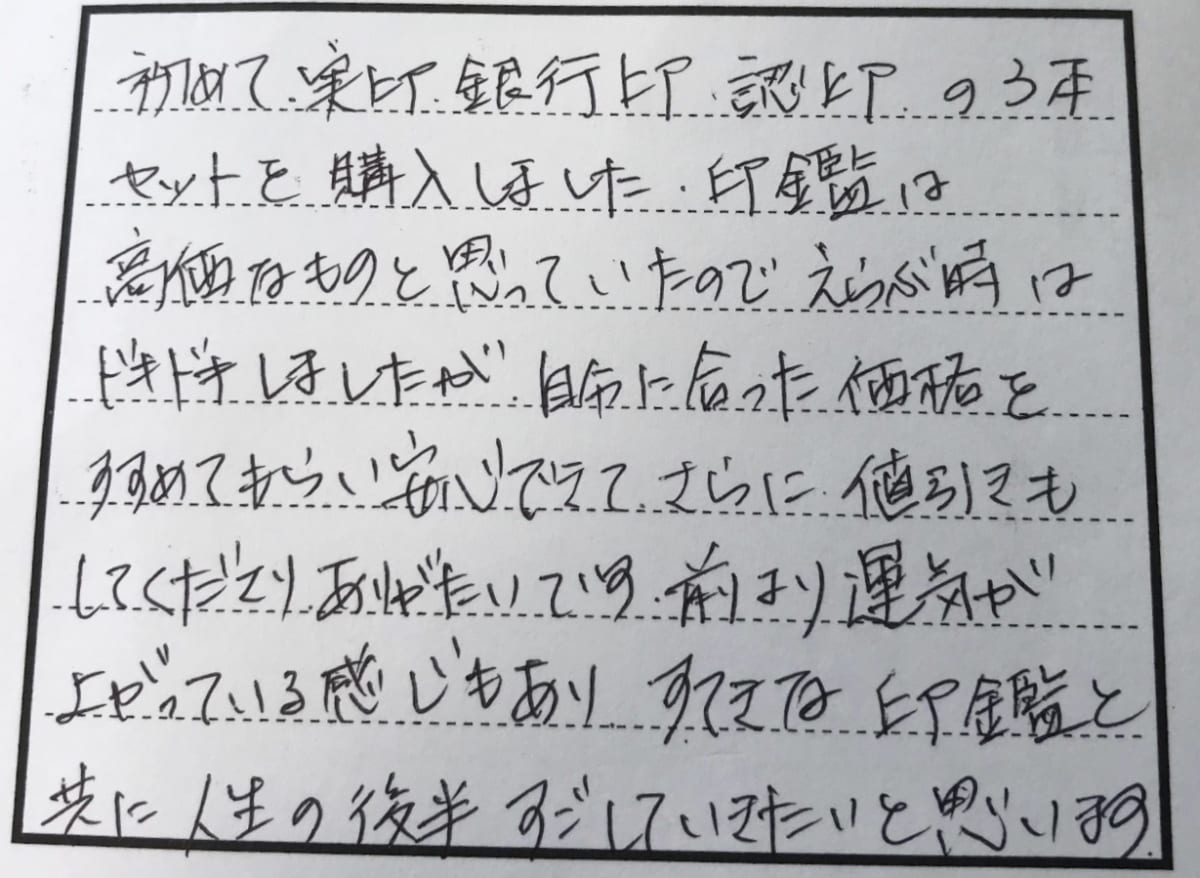 初めて、実印、銀行印、認印、の3本
セットを購入しました。印鑑は
高価なものと思っていたのでえらぶ時は
ドキドキしましたが、自分に合った価格を
すすめてもらい安心できて、さらに、値引きも
してくださり ありがたいです。前より運気が
上がっている感じもあり、すてきな印鑑と
共に人生の後半すごしていきたいと思います。